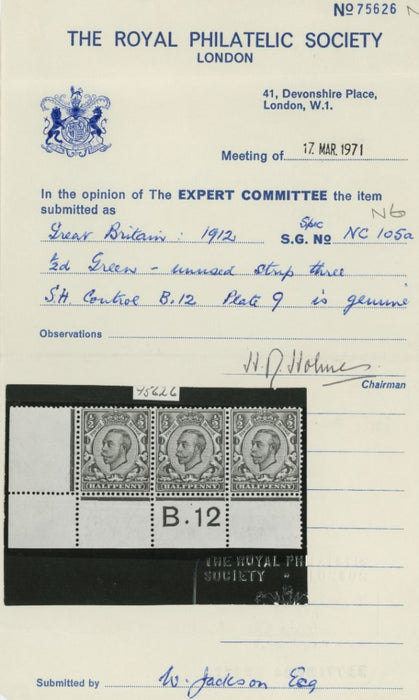 No 75626 N
THE ROYAL PHILATELIC SOCIETY
LONDON
41, Devonshire Place,
London, W.1.
Meeting of 17. MAR. 1971
In the opinion of The EXPERT COMMITTEE the item
submitted as
N6
Great Britain : 1912 S.G. No Spec NC 105a
½d Green - unused strip three
S.H. Control B.12 Plate 9 is genuine
Observations
H. D. Holmes
Chairman
75626
½ ½ ½ ½ ½ ½
HALFPENNY HALFPENNY HALFPENNY
B.12
THE ROYAL PH
SOCIETY
Submitted by W. Jackson Esq